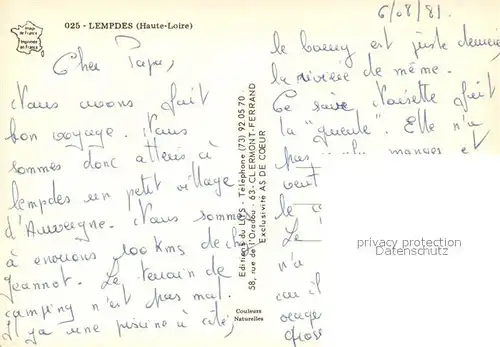 Image
de France
Imprimé
en France
025 - LEMPDES (Haute-Loire)
6/08/81.
Cher Papa,
Nous avons fait
bon voyage. Nous
sommes donc atterris à
lempdes un petit village
d'Auvergne. Nous sommes
à environs 100 kms de chez
Jeannot. Le terrain de
camping n'est pas mal.
Il y a une piscine à côté,
Editions du LYS - Téléphone (73) 92.05.70
58, rue de l'Oradou - 63-CLERMONT-FERRAND
Exclusivité AS DE COEUR
Couleurs
Naturelles
le bourg est juste derrière
la rivière de même.
Ce soir Noisette fait
la "gueule". Elle n'a
pas manger et
veut
le
Le
n'a
car il
orage
grosse
privacy protection
Datenschutz